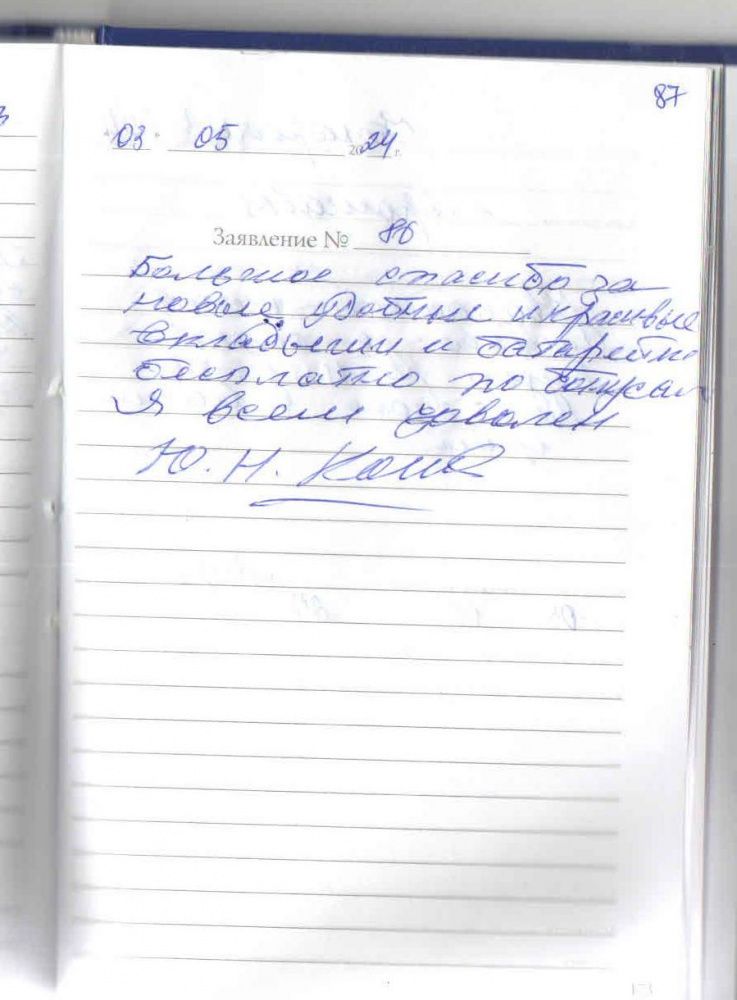 87
03. 05 2024 г.
Заявление № 86
Большое спасибо за
новые удобные и красивые
вкладыши и батарейки
бесплатно по бонусам
Я всем доволен
Ю. Н.